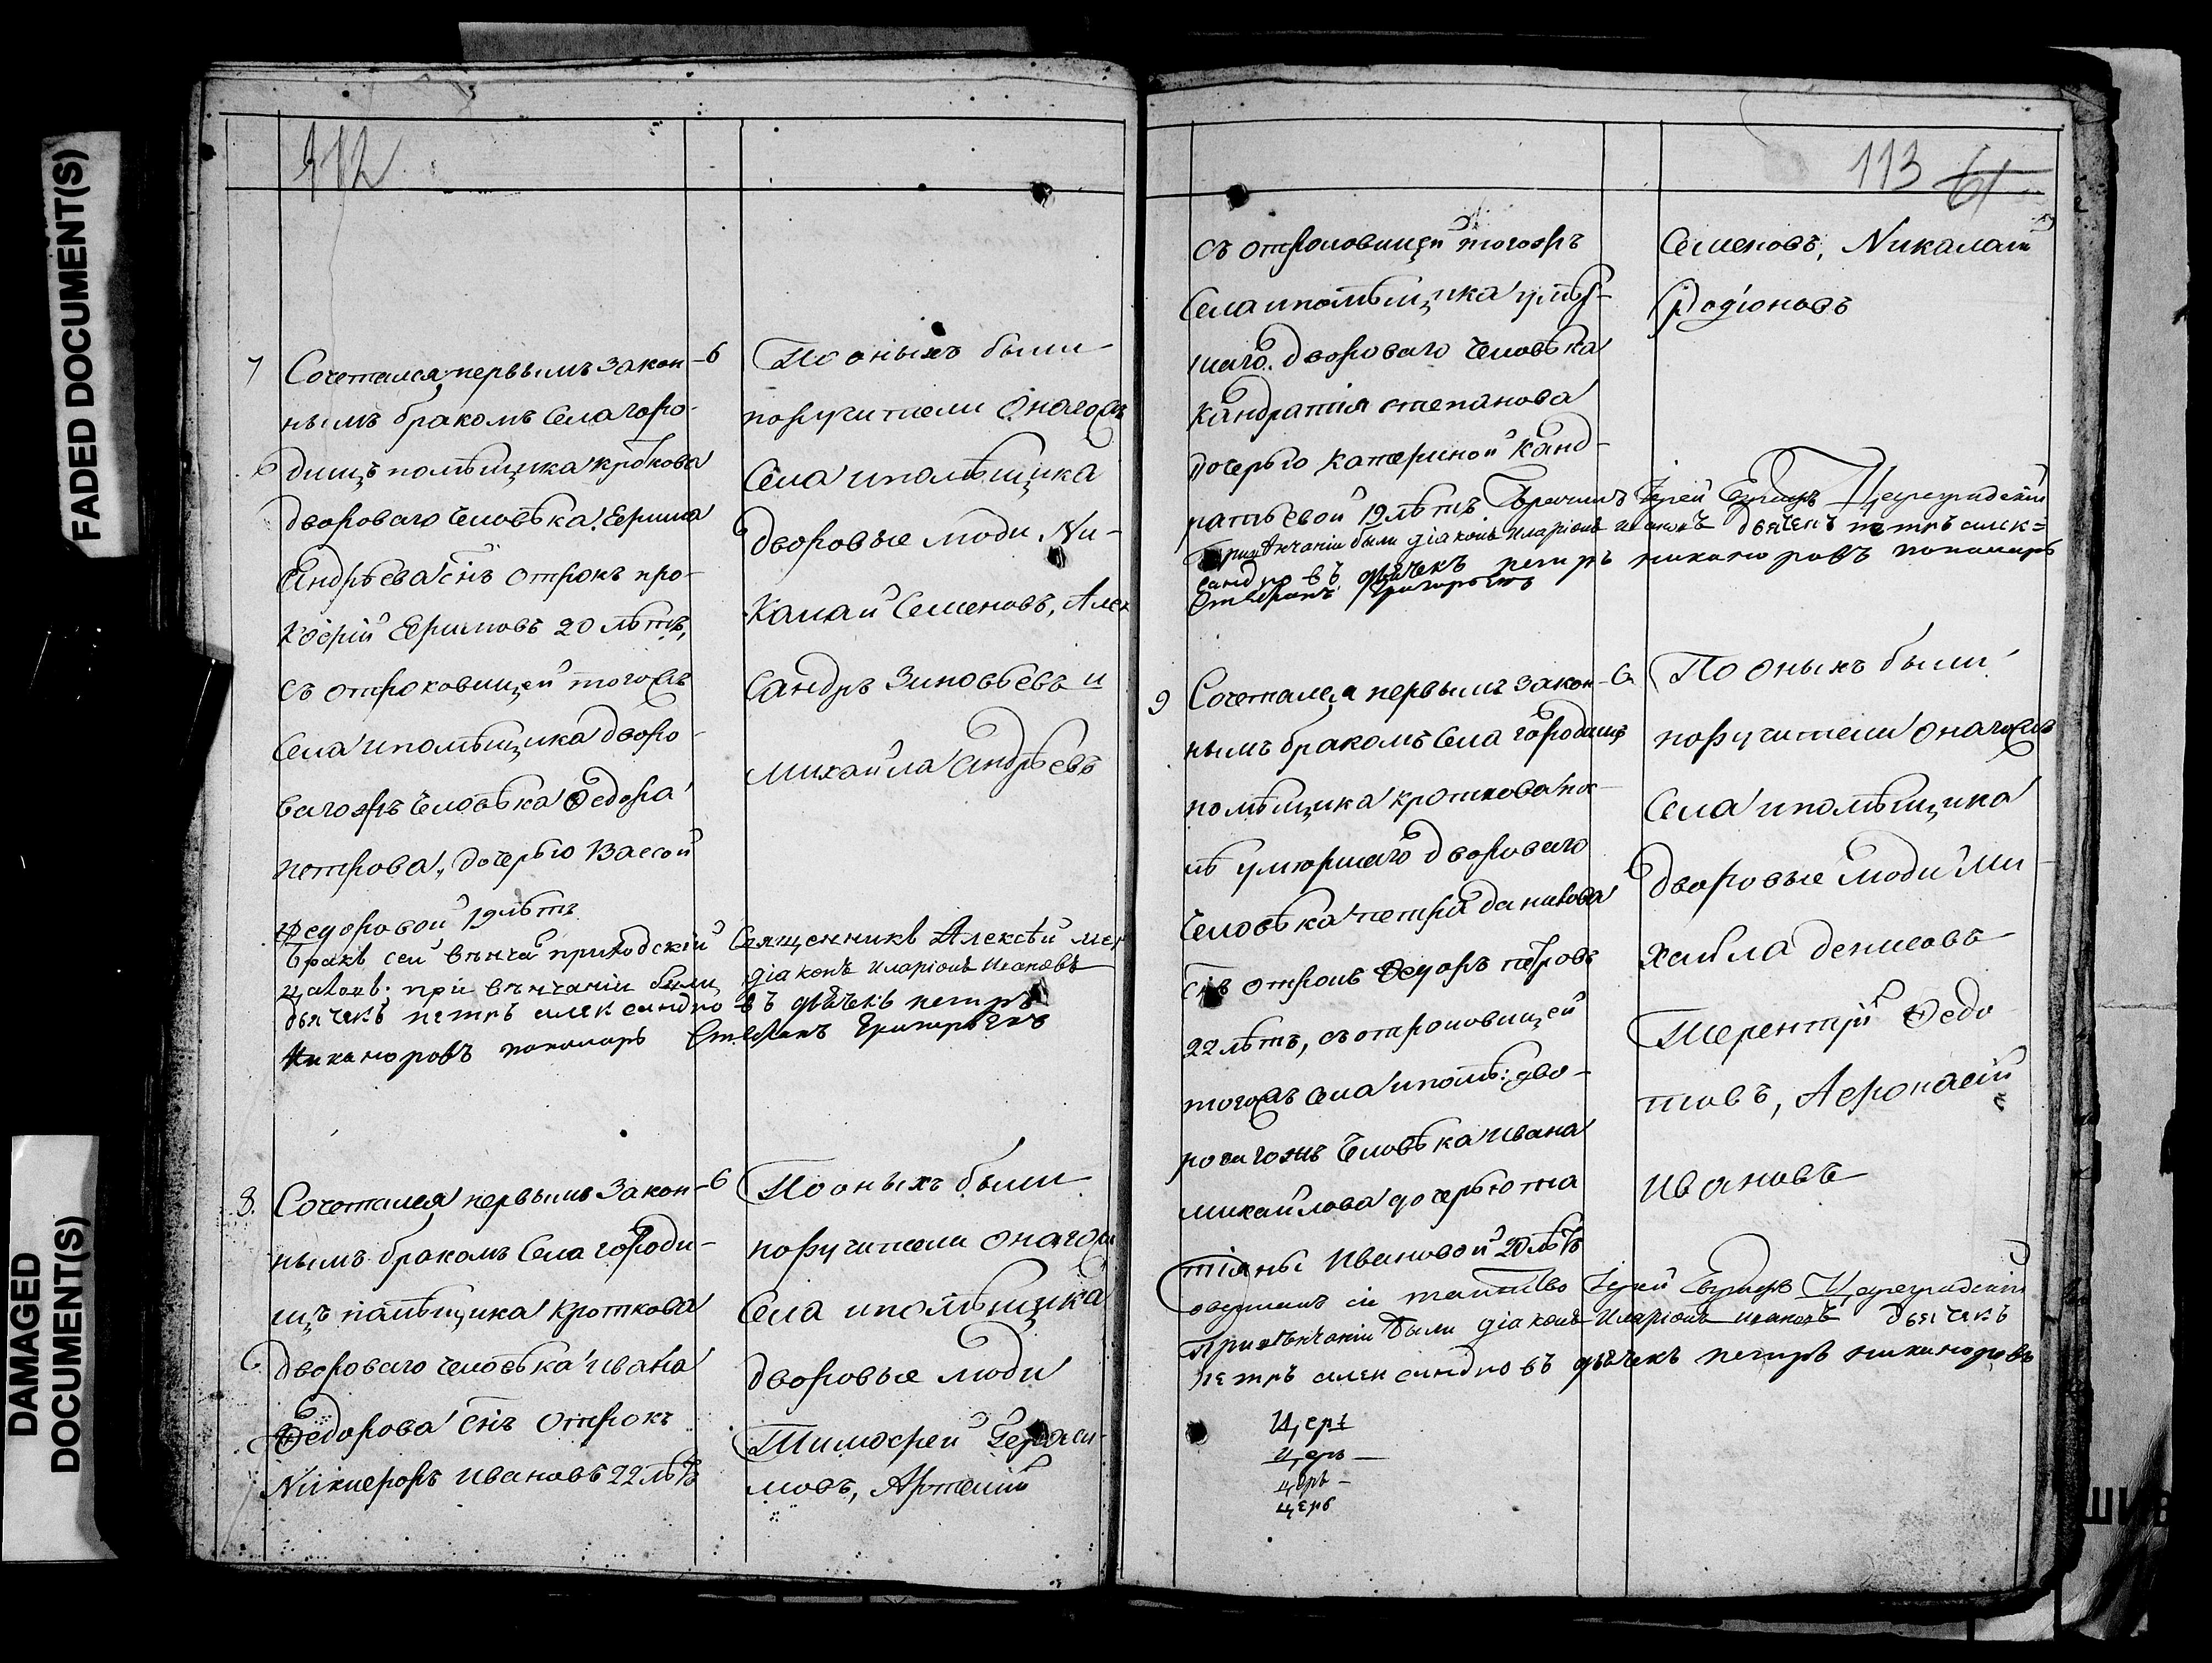 FADED DOCUMENT(S)
DAMAGED
DOCUMENT(S)
112
7
Сочетался первымъ закон-
нымъ бракомъ Села горо-
дищъ помѣщика кроткова
двороваго человѣка Ефима
Андрѣева снъ отрокъ про-
кофій Ефимовъ 20 лѣтъ,
съ отроковицей того жъ
Села ипомѣщика дворо-
ваго жъ человѣка Федора
петрова, дочерью Васой
Федоровой 19 лѣтъ
6
По оныхъ были
поручители онаго жъ
Села ипомѣщика
дворовые люди Ни-
калай Семеновъ, Алек
сандръ Зиновьевъ и
михайла Андрѣевъ
бракъ сей вѣнчал приходскій Священникъ Алексѣй
при вѣнчаніи были діаконъ иларіонъ ивановъ
дьячекъ петръ александровъ дьячекъ петръ
Никаноровъ пономарь Стефанъ Григорьевъ
8.
Сочетался первымъ закон-
нымъ бракомъ Села городи-
щъ памѣщика кроткова
двороваго человѣка ивана
Федорова снъ отрокъ
Никифоръ ивановъ 22 лѣтъ
6
По оныхъ были
поручители онаго жъ
Села ипомѣщика
дворовые люди
Тимофей Гераси-
мовъ, Артемій
113 61
съ отроковицей того жъ
Села ипомѣщика умер-
шаго двороваго человѣка
кандратія степанова
дочерью катериной канд-
ратьевой 19 лѣтъ
Семеновъ, Никалай
Родіоновъ
Іерей Цареградскій
При вѣнчаніи были діаконъ иларіонъ ивановъ дьячекъ петръ алек=
сандровъ дьячекъ петръ никаноровъ пономарь
Стефанъ Григорьевъ
9
Сочетался первымъ закон-
нымъ бракомъ Села городищъ
помѣщика кроткова по-
лѣ умюршаго двороваго
человѣка петра данилова
снъ отрокъ Федоръ петровъ
22 лѣтъ, съ отроковицей
того жъ Села ипомѣ: дво-
роваго жъ человѣка ивана
михайлова дочерью та
тіяной ивановой 20 лѣтъ
6
По оныхъ были
поручители онаго жъ
Села ипомѣщика
дворовые люди Ми-
хайла денисовъ
Терентій Федо
товъ, Афонасій
ивановъ
Іерей Цареградскій
При вѣнчаніи были діаконъ иларіонъ ивановъ дьячекъ
петръ александровъ дьячекъ петръ никаноровъ